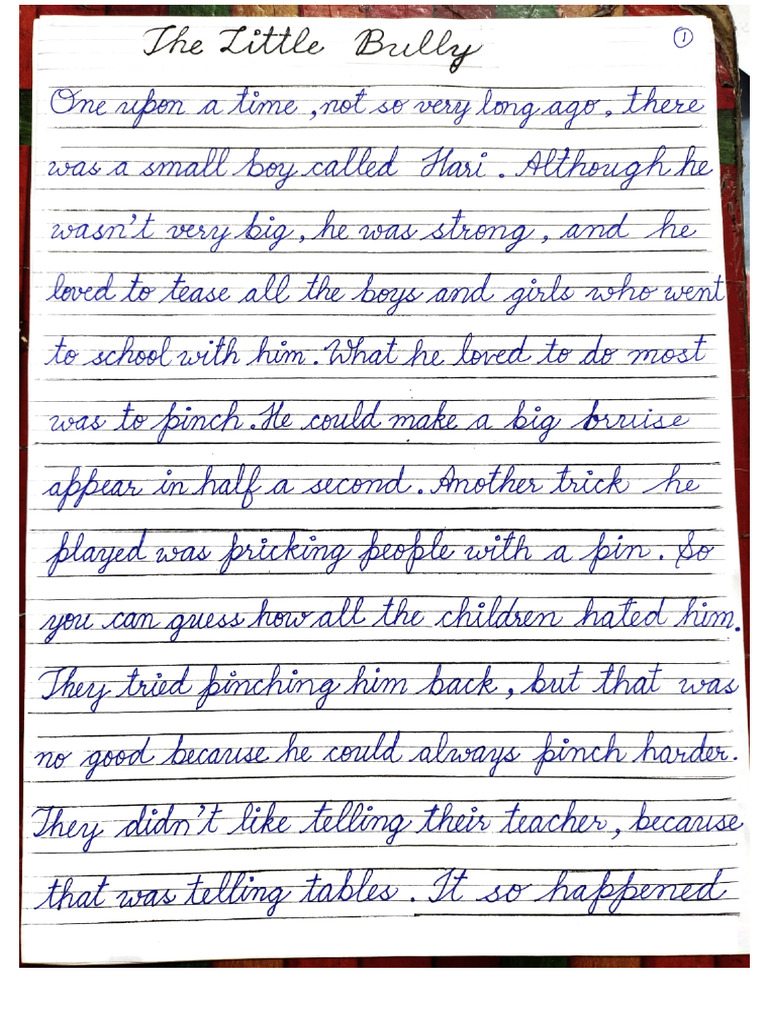 The Little Bully
1
One upon a time, not so very long ago, there
was a small boy called Hari. Although he
wasn't very big, he was strong, and he
loved to tease all the boys and girls who went
to school with him. What he loved to do most
was to pinch. He could make a big bruise
appear in half a second. Another trick he
played was pricking people with a pin. So
you can guess how all the children hated him.
They tried pinching him back, but that was
no good because he could always pinch harder.
They didn't like telling their teacher, because
that was telling tables. It so happened